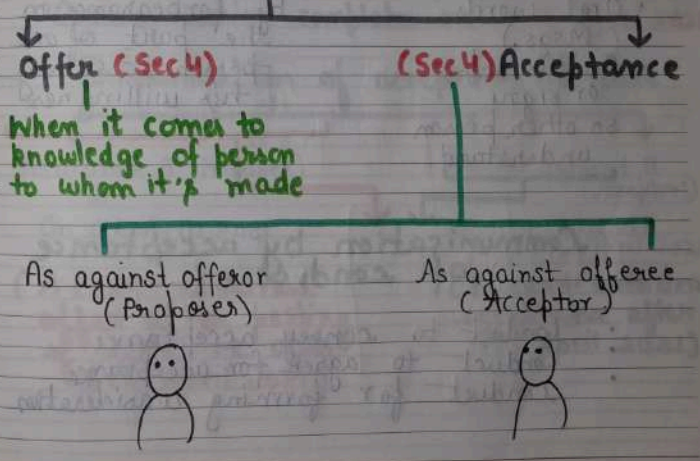 Offer (Sec 4)
(Sec 4) Acceptance
When it comes to
knowledge of person
to whom it's made
As against offeror
(Proposer)
As against offeree
(Acceptor)